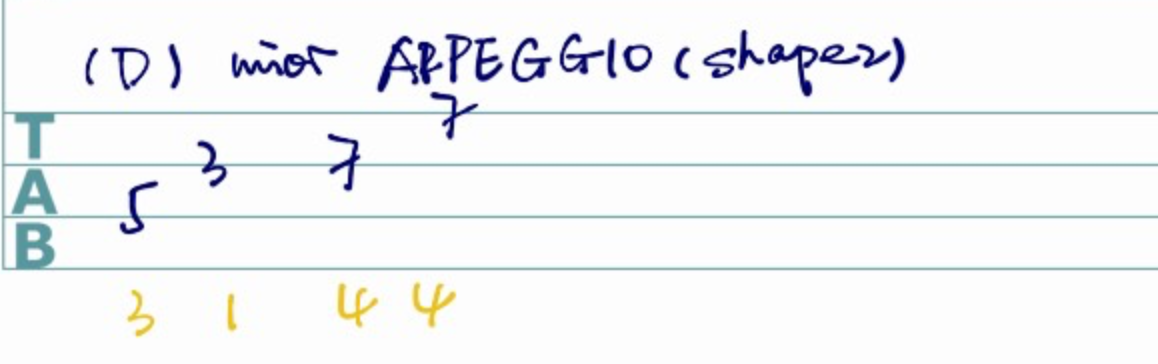 (D) minor ARPEGGIO (shape2)
7
T
3 7
A
5
B
3 1 4 4